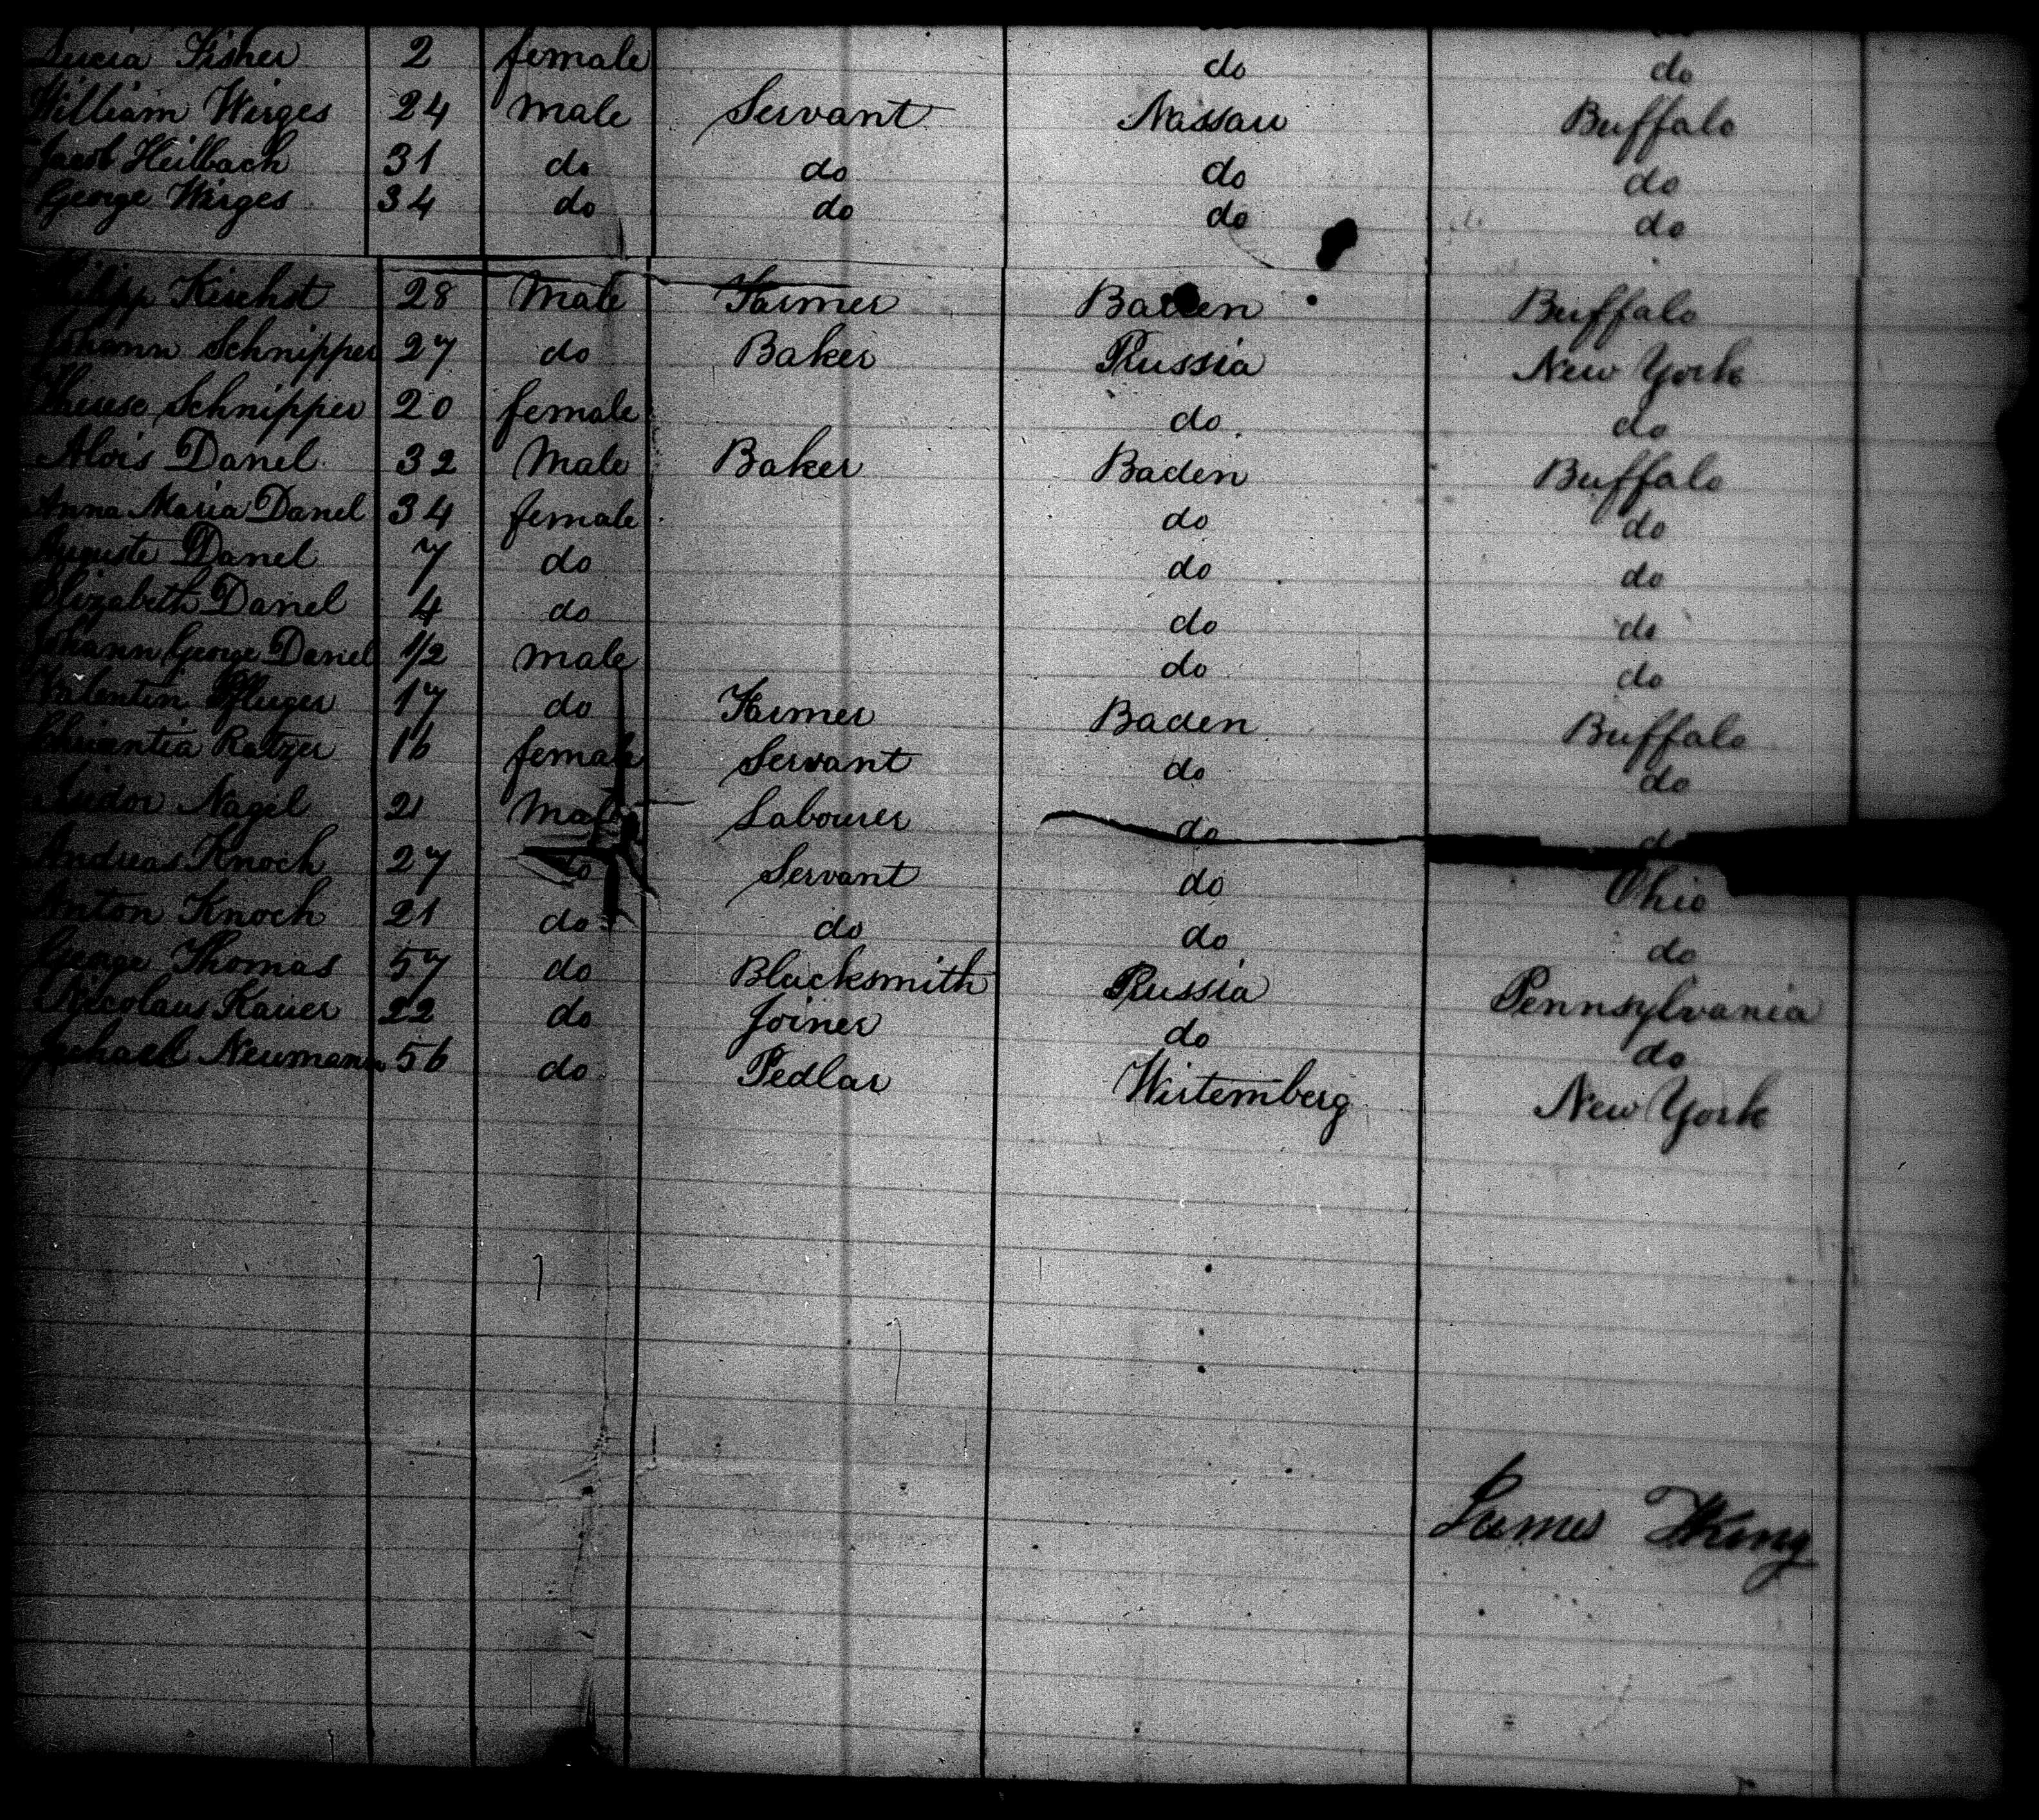 Lucia Fisher 2 female do do
William Wirges 24 Male Servant Nassau Buffalo
Jacob Heilbach 31 do do do do
George Wirges 34 do do do do
Philipp Kirchst 28 Male Farmer Baden Buffalo
Johann Schnipper 27 do Baker Prussia New York
Therese Schnipper 20 female do do
Alois Danel 32 Male Baker Baden Buffalo
Anna Maria Danel 34 female do do
Auguste Danel 7 do do do
Elizabeth Danel 4 do do do
Johann George Danel 1/2 male do do
Valentin Pflueger 17 do Farmer Baden Buffalo
Ratzer 16 female Servant do do
Isidor Nagel 21 Male Labourer do do
Andreas Knoch 27 do Servant do Ohio
Anton Knoch 21 do do do do
George Thomas 57 do Blacksmith Prussia Pennsylvania
Nicolaus Kauer 22 do Joiner do do
Neumann 56 do Pedlar Wirtemberg New York
James King